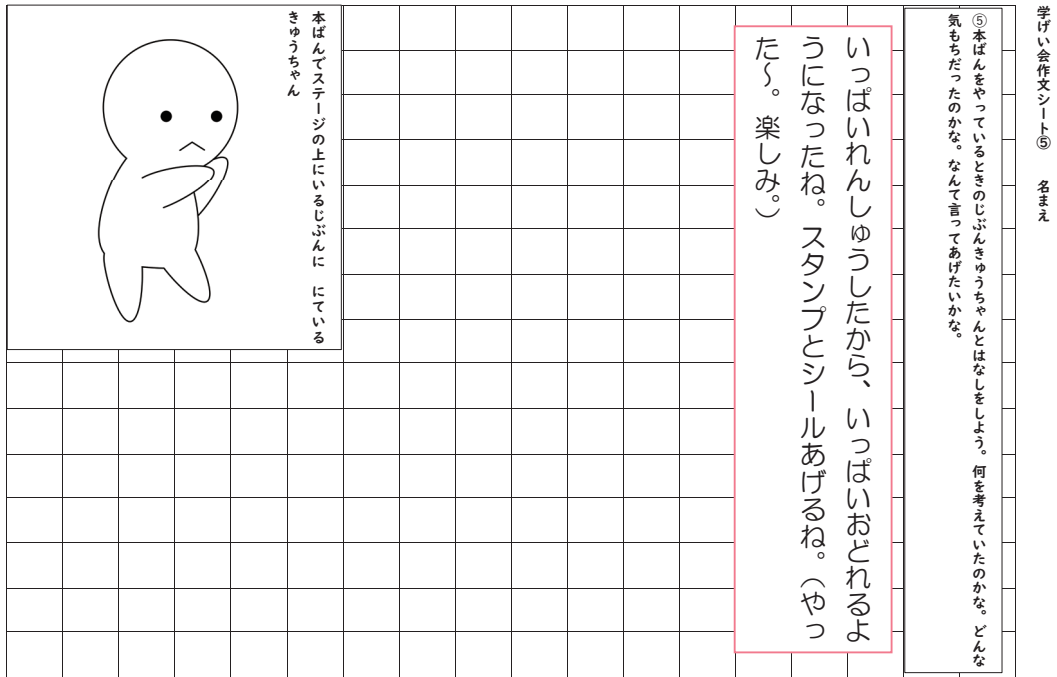 学げい会作文シート⑤　名まえ
⑤本ばんをやっているときのじぶんきゅうちゃんとはなしをしよう。何を考えていたのかな。どんな
気もちだったのかな。なんて言ってあげたいかな。
いっぱいれんしゅうしたから、いっぱいおどれるよ
うになったね。スタンプとシールあげるね。（やっ
た〜。楽しみ。）
本ばんでステージの上にいるじぶんに　にている
きゅうちゃん